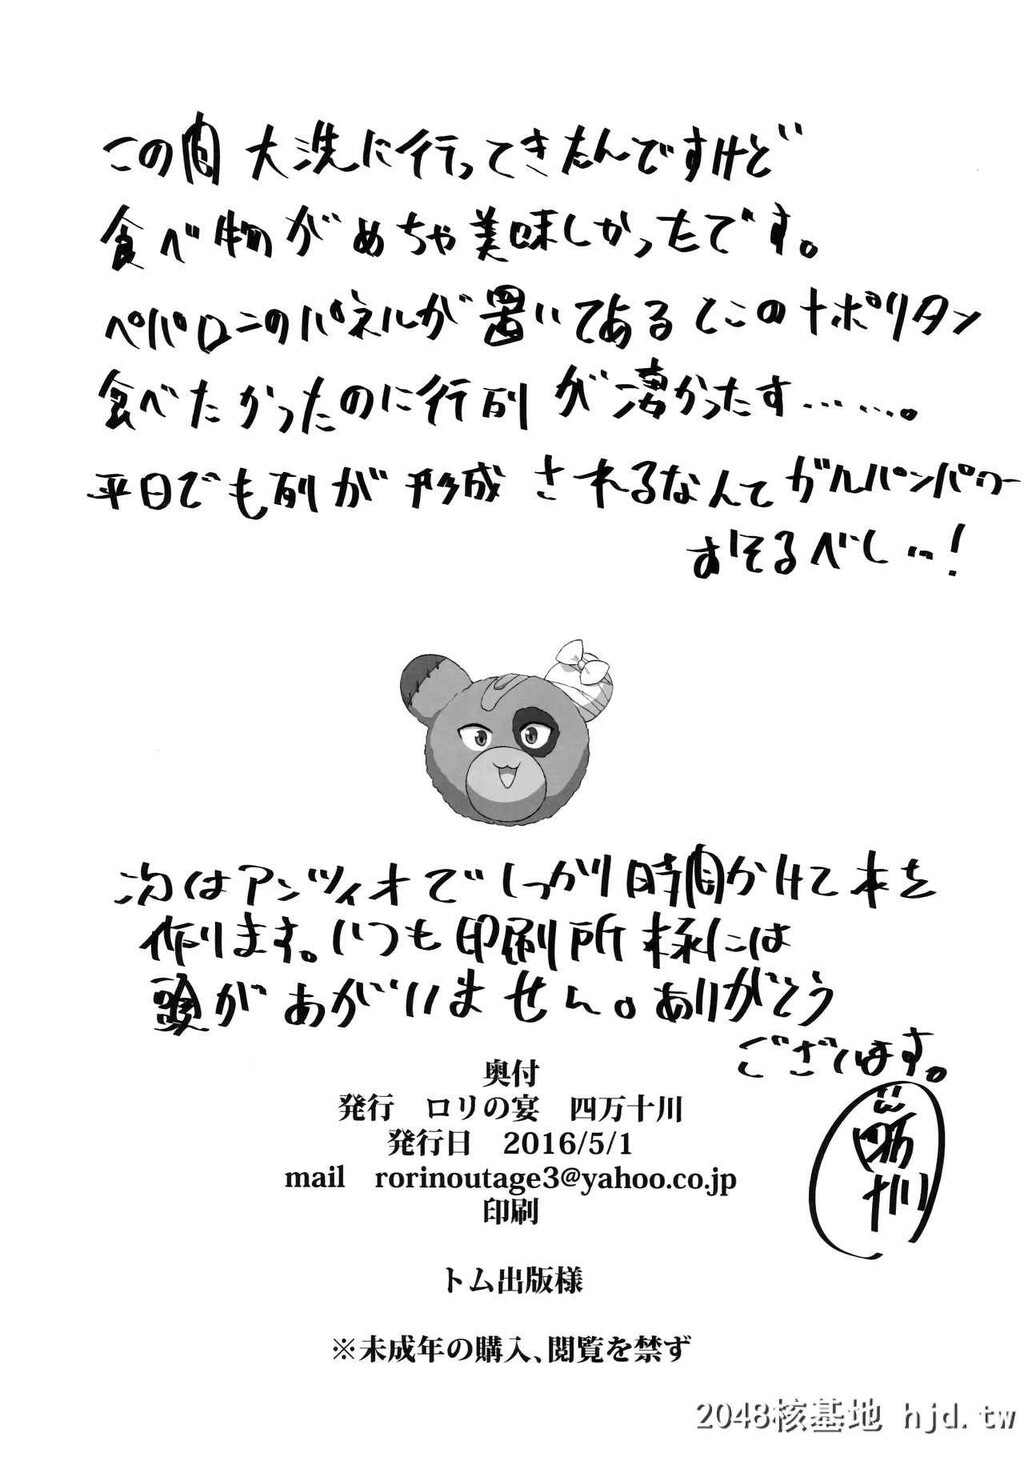 この間 大洗に行ってきたんですけど
食べ物がめちゃ美味しかったです。
ペパロニのパネルが置いてあるとこのナポリタン
食べたかったのに行列が凄かったす……。
平日でも列が形成されるなんてガルパンパワー
おそるべし…!
次はアンツィオでしっかり時間かけて本を
作ります。いつも印刷所様には
頭があがいません。ありがとう
ございます。
四万十川
奥付
発行 ロリの宴 四万十川
発行日 2016/5/1
mail rorinoutage3@yahoo.co.jp
印刷
トム出版様
※未成年の購入、閲覧を禁ず
2048核基地 hjd.tw